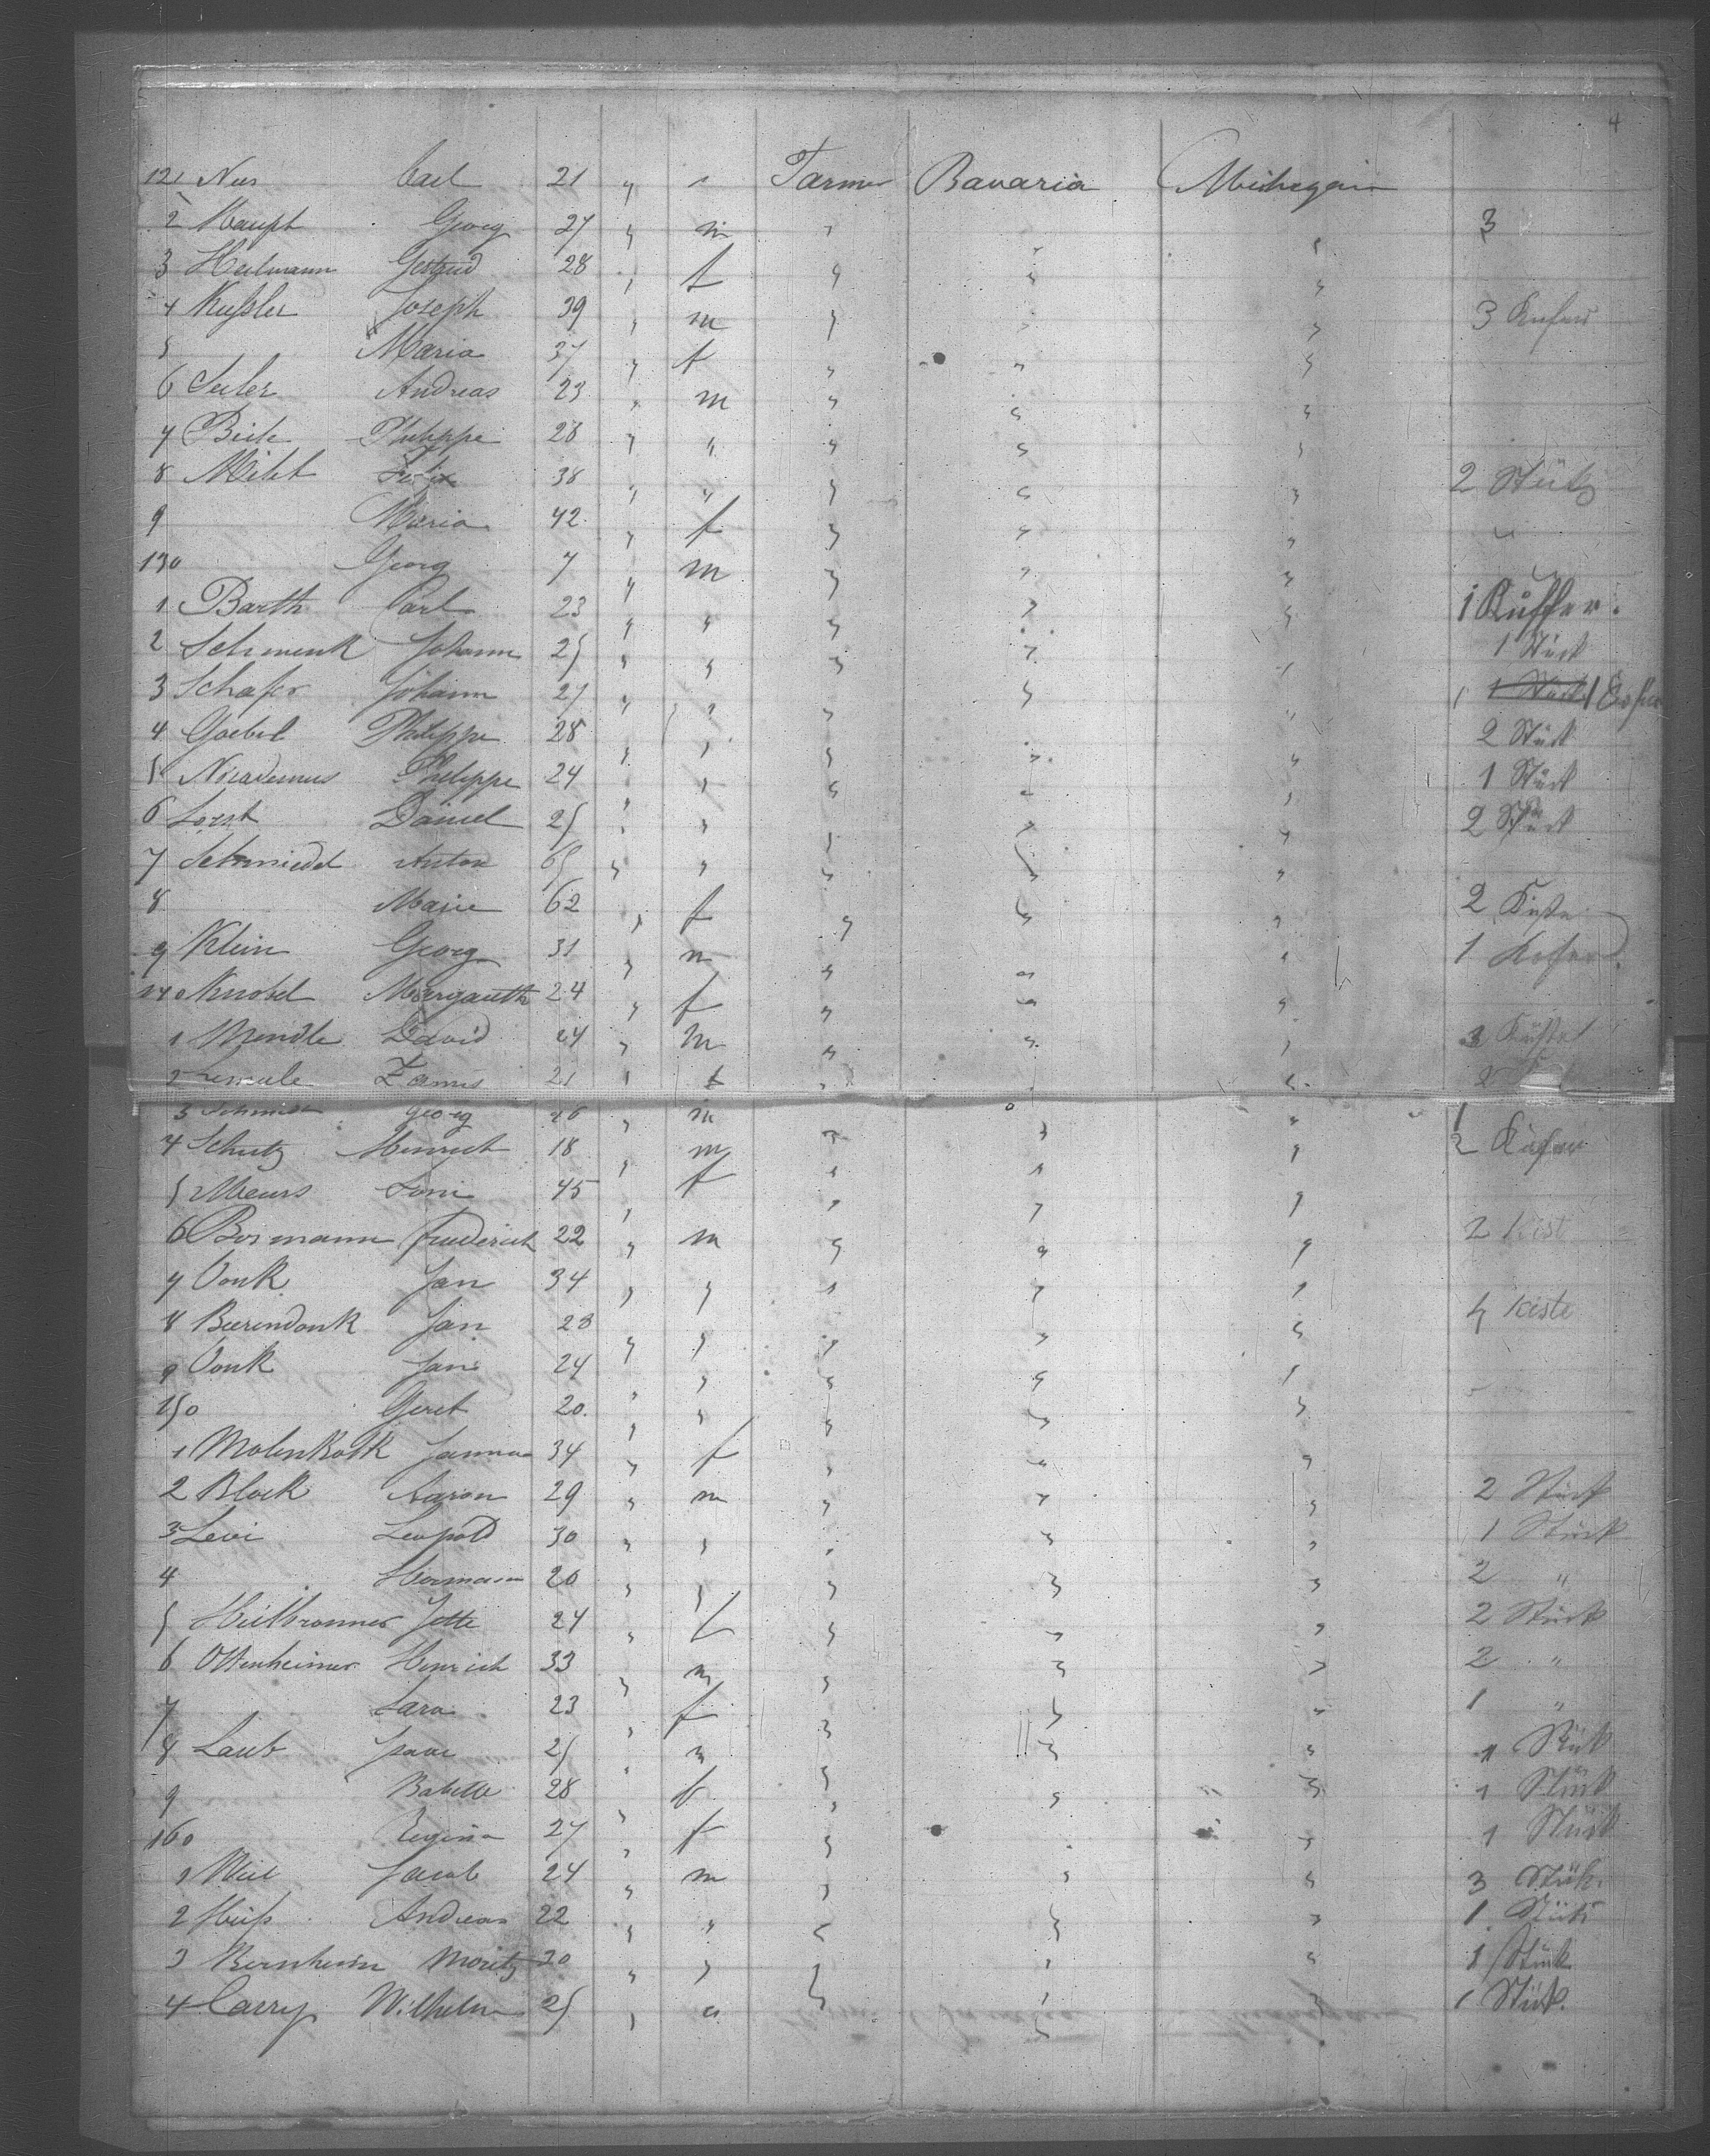 4
121 Nus Carl 21 " " Farmer Bavaria Michegain
2 Haupt Georg 27 " m " " " 3
3 Heilmann Gertrud 28 " f " " "
4 Kußler Joseph 39 " m " " " 3
5 Maria 37 " f " " "
6 Seiler Andreas 23 " m " " "
7 Philippe 28 " " " " "
8 38 " " " " " 2 Stück
9 Maria 42 " f " " " "
130 Georg 7 " m " " "
1 Barth Carl 23 " " " " " 1 Kuffer.
2 Schwenk Johann 25 " " " " " 1 Stück
3 Schafer Johann 27 " " " " " 1
4 Goebel Philippe 28 " " " " " 2 Stück
5 Nicademus Philippe 24 " " " " " 1 Stück
6 Daniel 25 " " " " " 2 Stück
7 Schmiedel Anton 65 " " " " "
8 Marie 62 " f " " " 2 Kiste
9 Klein Georg 31 " m " " " 1 Kofer
140 Knobel Margareth 24 " f " " "
1 Mendle David 24 " m " " " 3
2 21 " f " " " 2
3 Schmidt Georg 26 " m " " " 1
4 Schutz Henrich 18 " m " " " 2
5 Meurs 45 " f " " "
6 Bormann Friederich 22 " m " " " 2 Kist
7 Vonk Jan 34 " " " " "
8 Beerendonk Jan 28 " " " " " 4 Kiste
9 Vonk Jan 24 " " " " "
150 Geret 20. " " " " "
1 Molenkolk Janna 34 " f " " "
2 Block Aaron 29 " m " " " 2 Stück
3 Levi Leopold 30 " " " " " 1 Stück
4 Hermann 20 " " " " " 2 "
5 Heilbronner Jette 24 " f " " " 2 Stück
6 Ottenheimer Henrich 33 " m " " " 2 "
7 Sara 23 " f " " " 1 "
8 Laub Isaac 25 " m " " " 1 Stück
9 Babette 28 " f " " " 1 Stück
160 Regina 27 " f " " " 1 Stück
1 Weil Jacob 24 " m " " " 3 Stück
2 Andreas 22 " " " " " 1 Stück
3 Bernheim Moritz 20 " " " " " 1 Stück
4 Carry Wilhelm 25 " " " " " 1 Stück